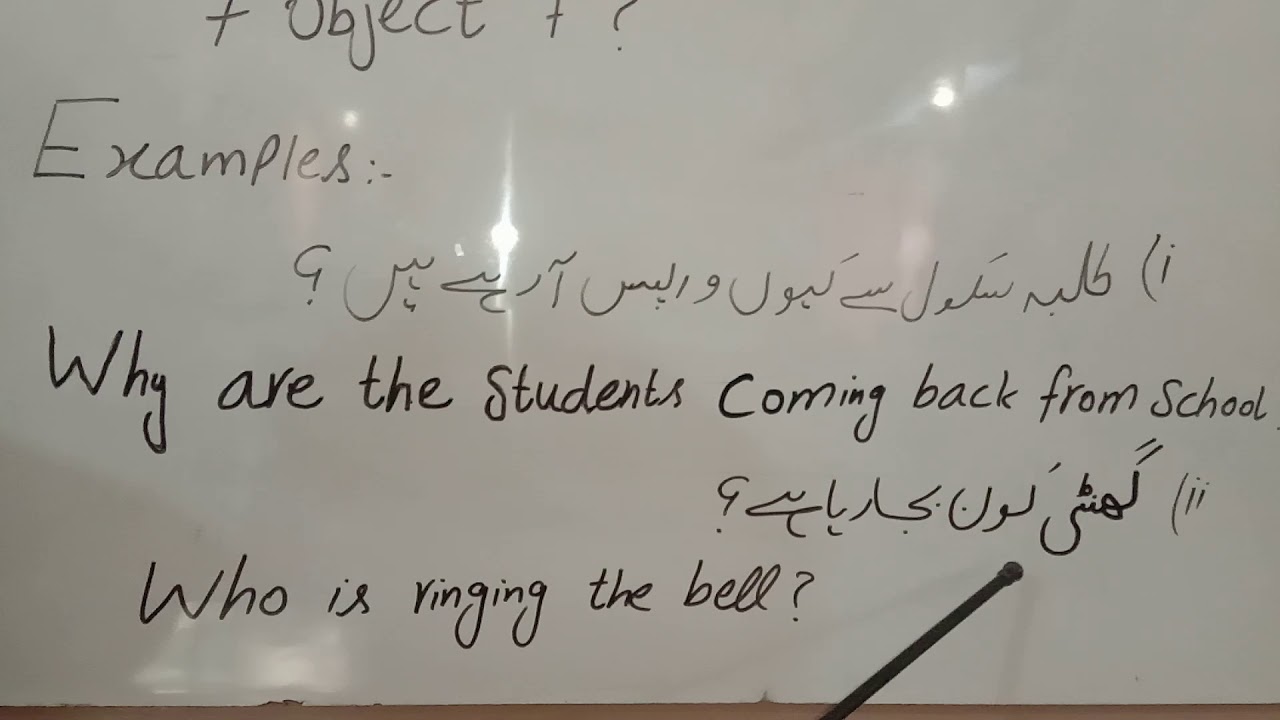 + Object + ?
Examples:-
i) طلبہ سکول سے کیوں واپس آرہے ہیں ؟
Why are the Students Coming back from School.
ii) گھنٹی کون بجا رہا ہے؟
Who is ringing the bell?